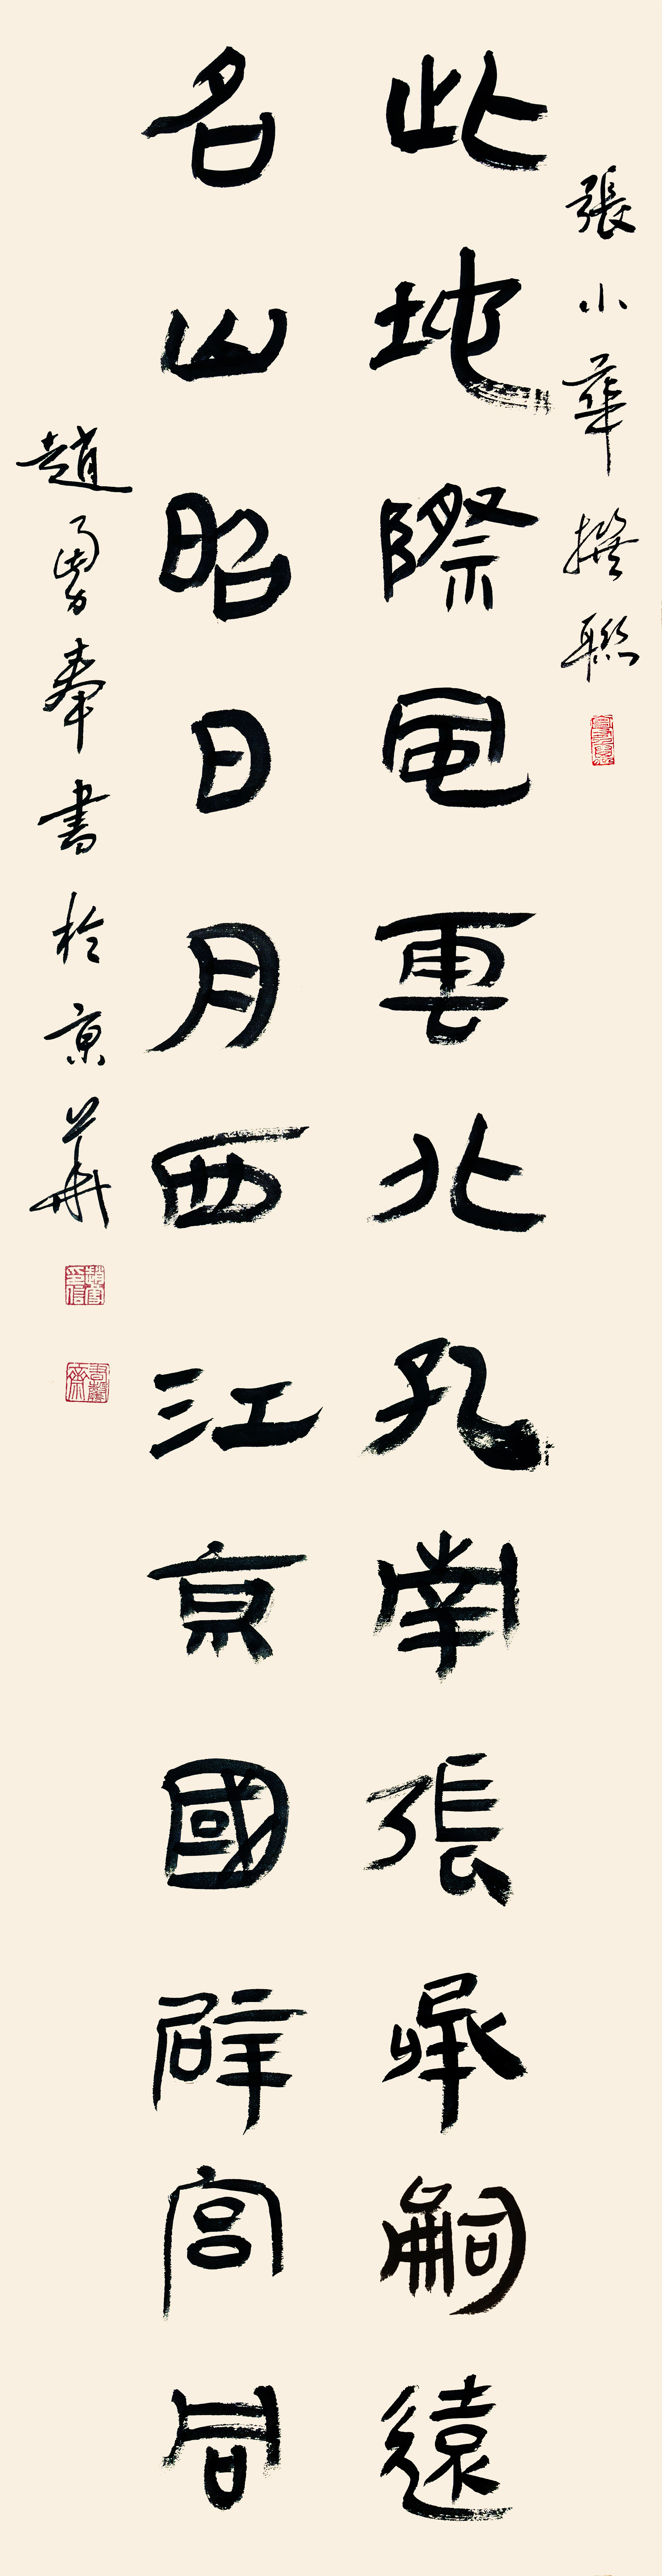 張小華撰聯
此地際風雲北孔南張承嗣遠
名山昭日月西江京國辟宮同
趙勇奉書於京華